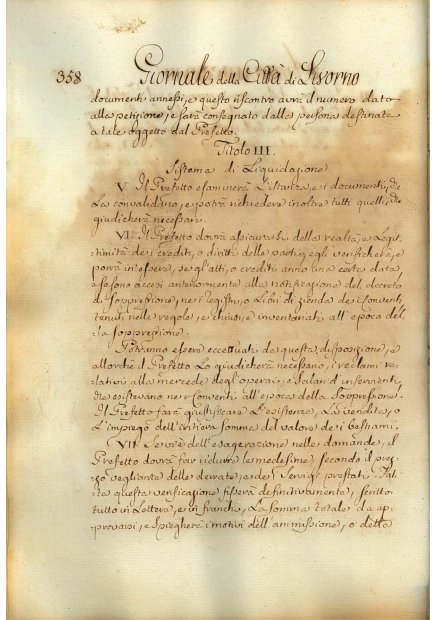 358 Giornale della Città di Livorno
documenti annessi, e questo riscontro avrà il numero dato
alla petizione, e sarà consegnato dalla persona destinata
a tale oggetto dal Prefetto.
Titolo III.
Sistema di Liquidazione
V. Il Prefetto esaminerà L'istanza, e i documenti, che
La convalidano, e potrà richiedere inoltre tutti quelli, che
giudicherà necessari.
VI. Il Prefetto dovrà assicurarsi della realtà, e Legit-
timità dei crediti, o diritti delle parti; egli verificherà, e
porrà in essere, se gli atti, o crediti anno una certa data,
se sono accesi anteriormente alla notificazione del decreto
di soppressione, nei registri, o Libri di azienda dei conventi,
tenuti nelle regole, e chiusi, e inventariati all'epoca del-
-la soppressione.
Potranno essere eccettuati da questa disposizione, e
allorchè il Prefetto Lo giudicherà necessario, i reclami re-
lativi alla mercede degl'operai, e Salari d'inservienti,
che esistevano nei conventi all'epoca della Soppressione.
Il Prefetto farà giustificare L'esistenza, La vendita, o
L'impiego dell'intiera somma del valore dei bestiami.
VII. Se vi è dell'esagerazione nelle domande, il
Prefetto dovrà far ridurre le medesime, secondo il prez-
zo vegliante delle derrate, e dei Servigi prestati. Fat-
ta questa verificazione fisserà definitivamente, scritto
tutto in Lettere, e in franchi, La somma totale da ap-
provarsi, e spiegherà i motivi dell'ammissione, o della